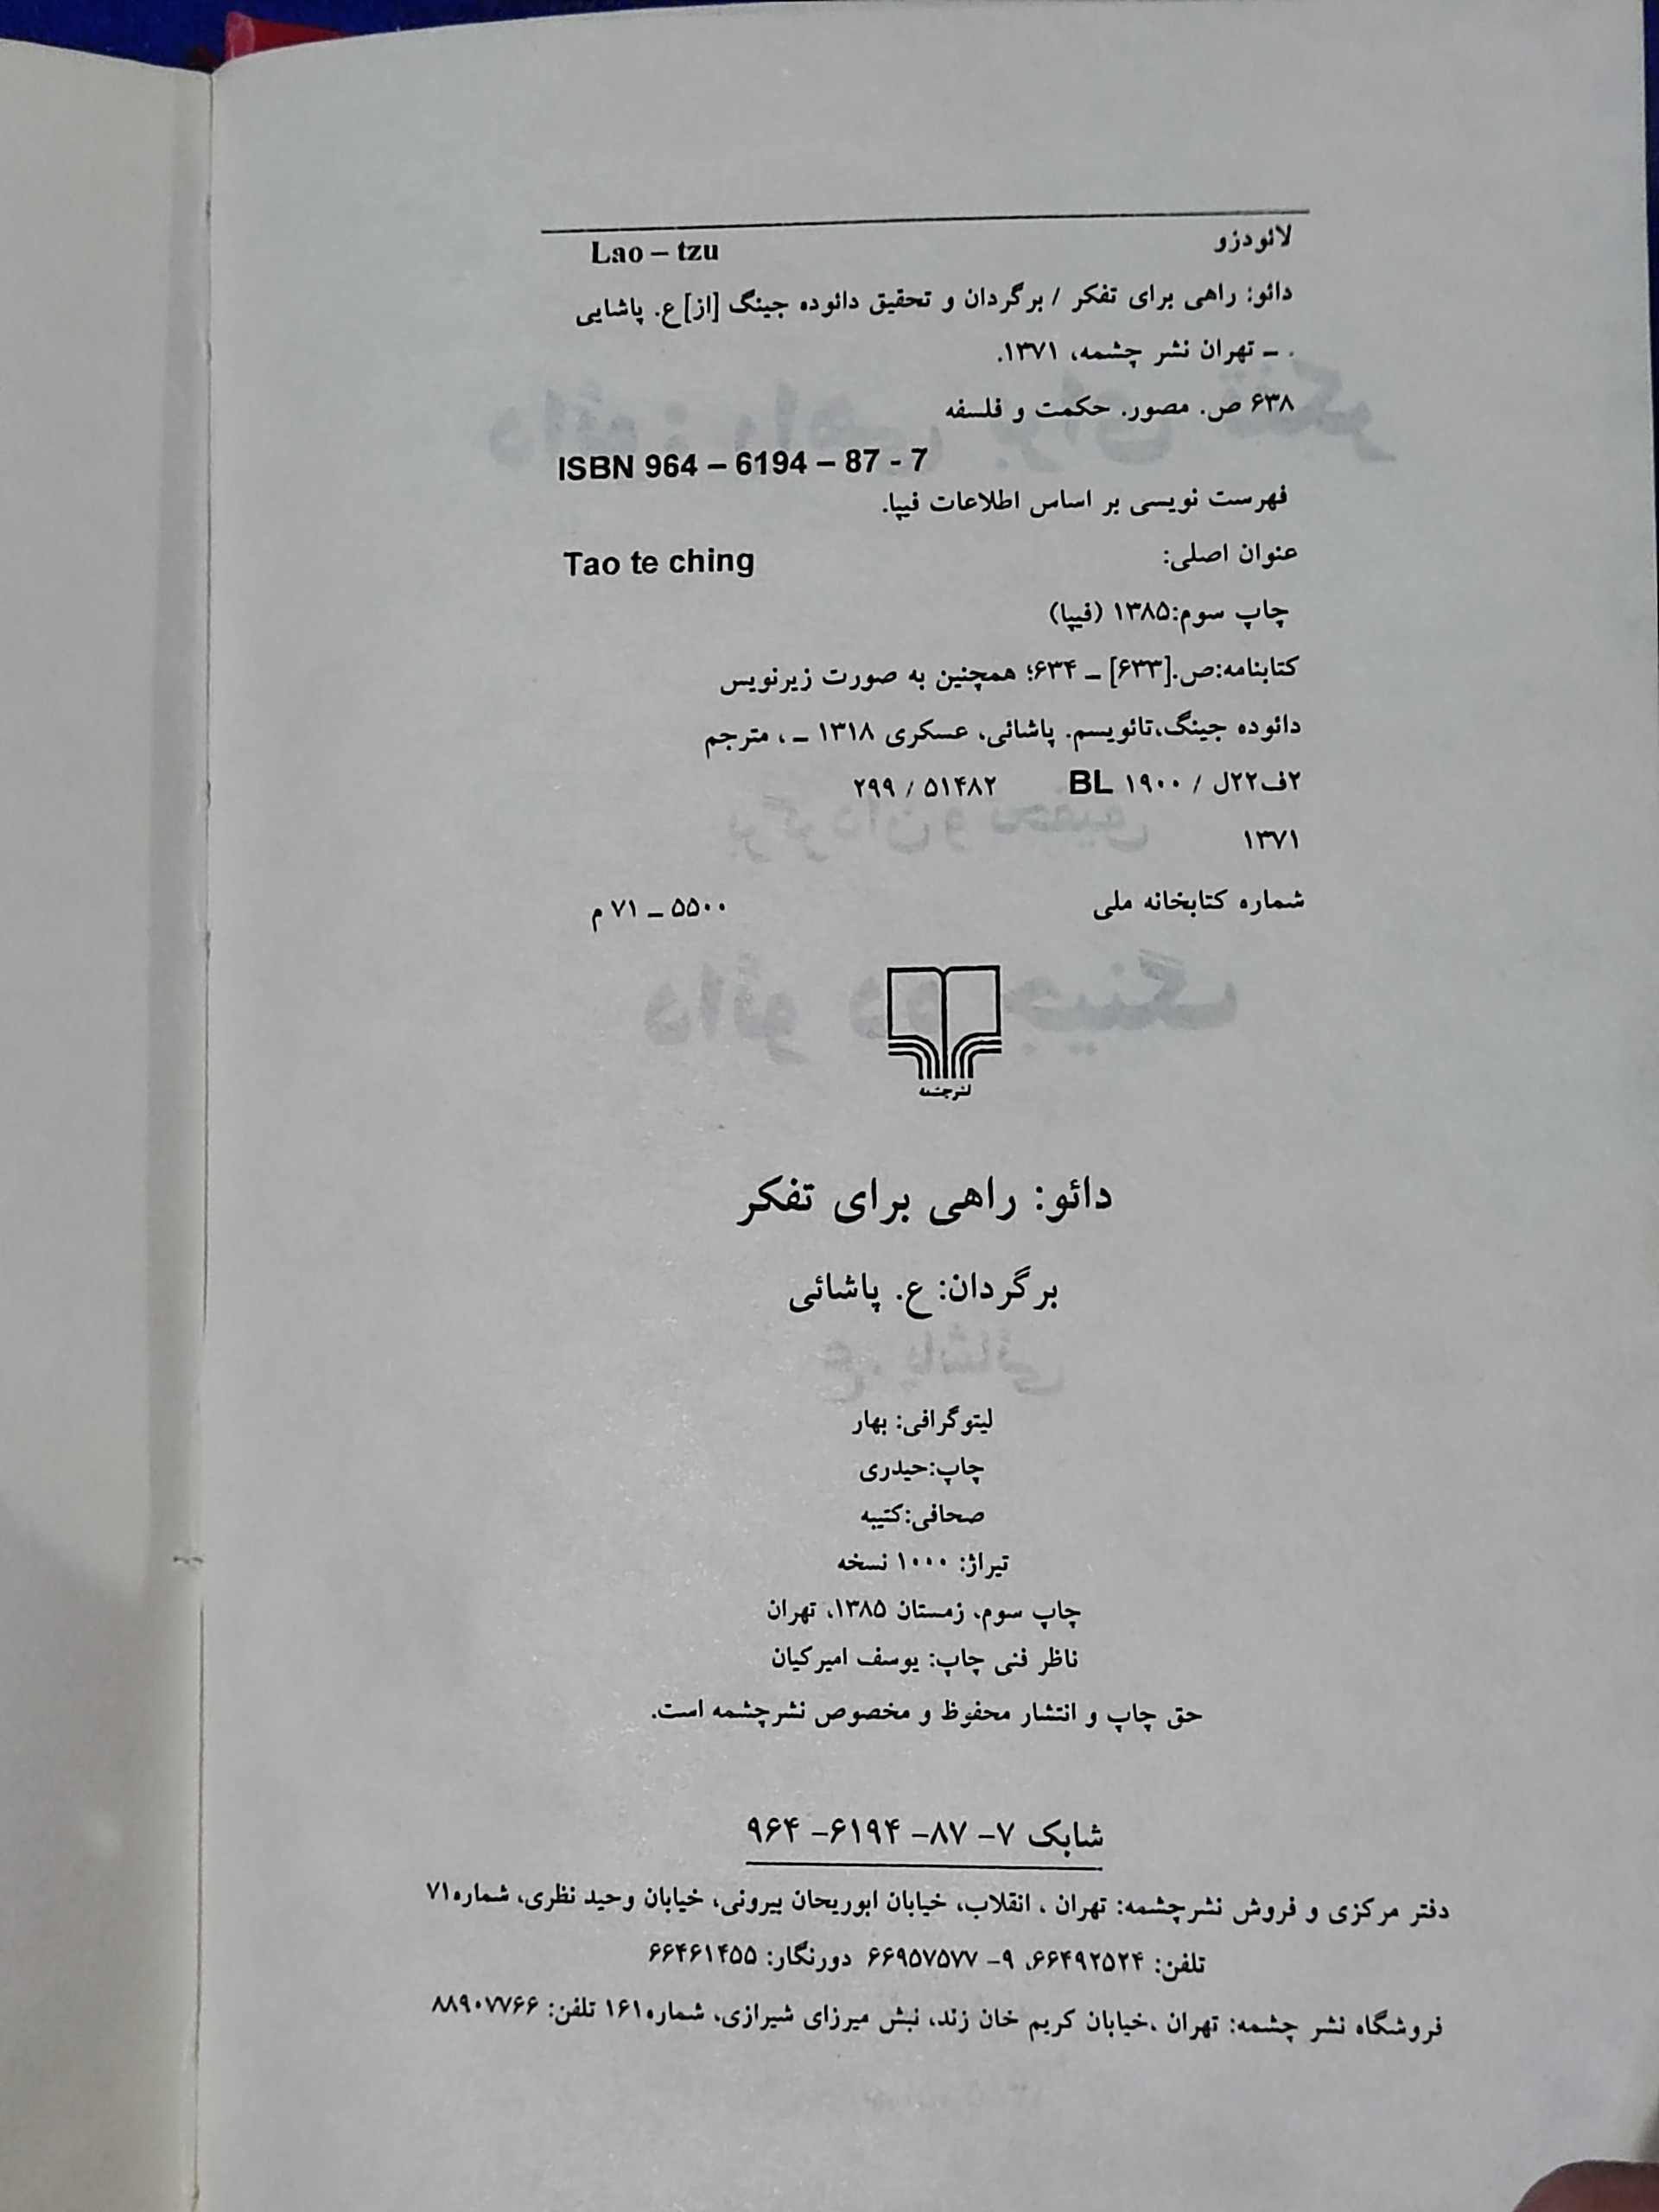 لائودزو Lao – tzu
دائو: راهی برای تفکر / برگردان و تحقیق دائوده جینگ [از] ع. پاشایی
. ـ تهران نشر چشمه، ۱۳۷۱.
۶۳۸ ص. مصور. حکمت و فلسفه
ISBN 964 – 6194 – 87 - 7
فهرست نویسی بر اساس اطلاعات فیپا.
عنوان اصلی: Tao te ching
چاپ سوم:۱۳۸۵ (فیپا)
کتابنامه:ص.[۶۳۳] ـ ۶۳۴؛ همچنین به صورت زیرنویس
دائوده جینگ،تائویسم. پاشائی، عسکری ۱۳۱۸ ـ ، مترجم
۲ف۲۲ل / ۱۹۰۰ BL ۲۹۹ / ۵۱۴۸۲
۱۳۷۱
شماره کتابخانه ملی ۵۵۰۰ ـ ۷۱ م
نشرچشمه
دائو: راهی برای تفکر
برگردان: ع. پاشائی
لیتوگرافی: بهار
چاپ:حیدری
صحافی:کتیبه
تیراژ: ۱۰۰۰ نسخه
چاپ سوم، زمستان ۱۳۸۵، تهران
ناظر فنی چاپ: یوسف امیرکیان
حق چاپ و انتشار محفوظ و مخصوص نشرچشمه است.
شابک ۷- ۸۷- ۶۱۹۴- ۹۶۴
دفتر مرکزی و فروش نشرچشمه: تهران ، انقلاب، خیابان ابوریحان بیرونی، خیابان وحید نظری، شماره۷۱
تلفن: ۶۶۴۹۲۵۲۴، ۹- ۶۶۹۵۷۵۷۷ دورنگار: ۶۶۴۶۱۴۵۵
فروشگاه نشر چشمه: تهران ،خیابان کریم خان زند، نبش میرزای شیرازی، شماره۱۶۱ تلفن: ۸۸۹۰۷۷۶۶